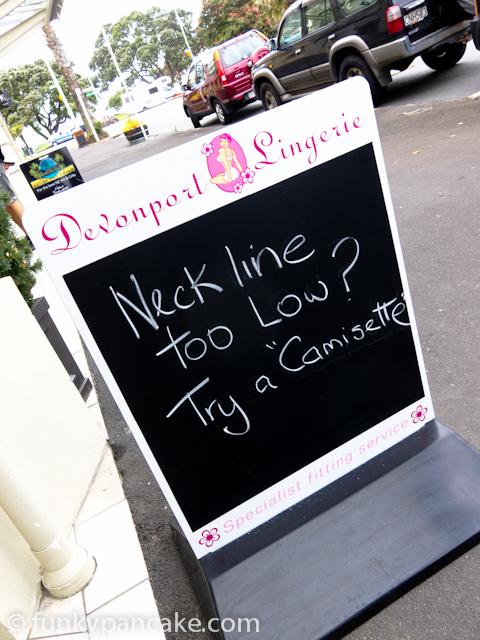 Devonport Lingerie
Neck line
too Low?
Try a "Camisette"
Specialist fitting service
© funkypancake.com